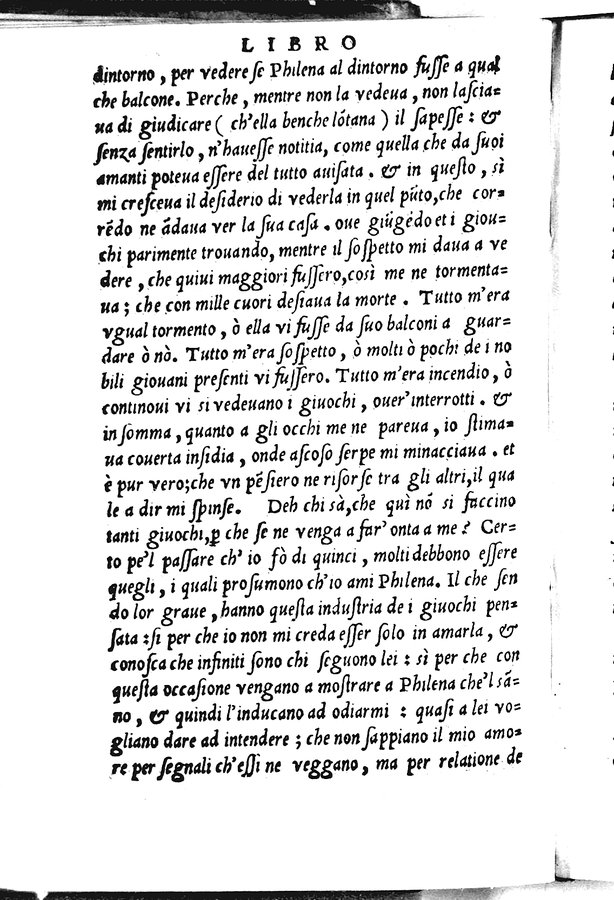 LIBRO
dintorno, per vedere se Philena al dintorno fusse a qual
che balcone. Perche, mentre non la vedeua, non lascia=
ua di giudicare ( ch'ella benche lõtana ) il sapesse : &
senza sentirlo, n'hauesse notitia, come quella che da suoi
amanti poteua essere del tutto auisata. & in questo, sì
mi cresceua il desiderio di vederla in quel pũto, che cor=
rẽdo ne ãdaua ver la sua casa. oue giũgẽdo et i giou=
chi parimente trouando, mentre il sospetto mi daua a ve
dere, che quiui maggiori fussero, così me ne tormenta=
ua; che con mille cuori desiaua la morte. Tutto m'era
vgual tormento, ò ella vi fusse da suo balconi a guar=
dare ò nò. Tutto m'era sospetto, ò molti ò pochi de i no
bili giouani presenti vi fussero. Tutto m'era incendio, ò
continoui vi si vedeuano i giuochi, ouer'interrotti. &
in somma, quanto a gli occhi me ne pareua, io stima=
ua couerta insidia, onde ascoso serpe mi minacciaua. et
è pur vero; che vn pẽsiero ne risorse tra gli altri, il qua
le a dir mi spinse. Deh chi sà, che quì nõ si faccino
tanti giuochi, ꝑ che se ne venga a far' onta a me? Cer=
to pe'l passare ch' io fò di quinci, molti debbono essere
quegli, i quali prosumono ch'io ami Philena. Il che sen
do lor graue, hanno questa industria de i giuochi pen=
sata : si per che io non mi creda esser solo in amarla, &
conosca che infiniti sono chi seguono lei : sì per che con
questa occasione vengano a mostrare a Philena che'l sã=
no, & quindi l'inducano ad odiarmi : quasi a lei vo=
gliano dare ad intendere ; che non sappiano il mio amo=
re per segnali ch'essi ne veggano, ma per relatione de